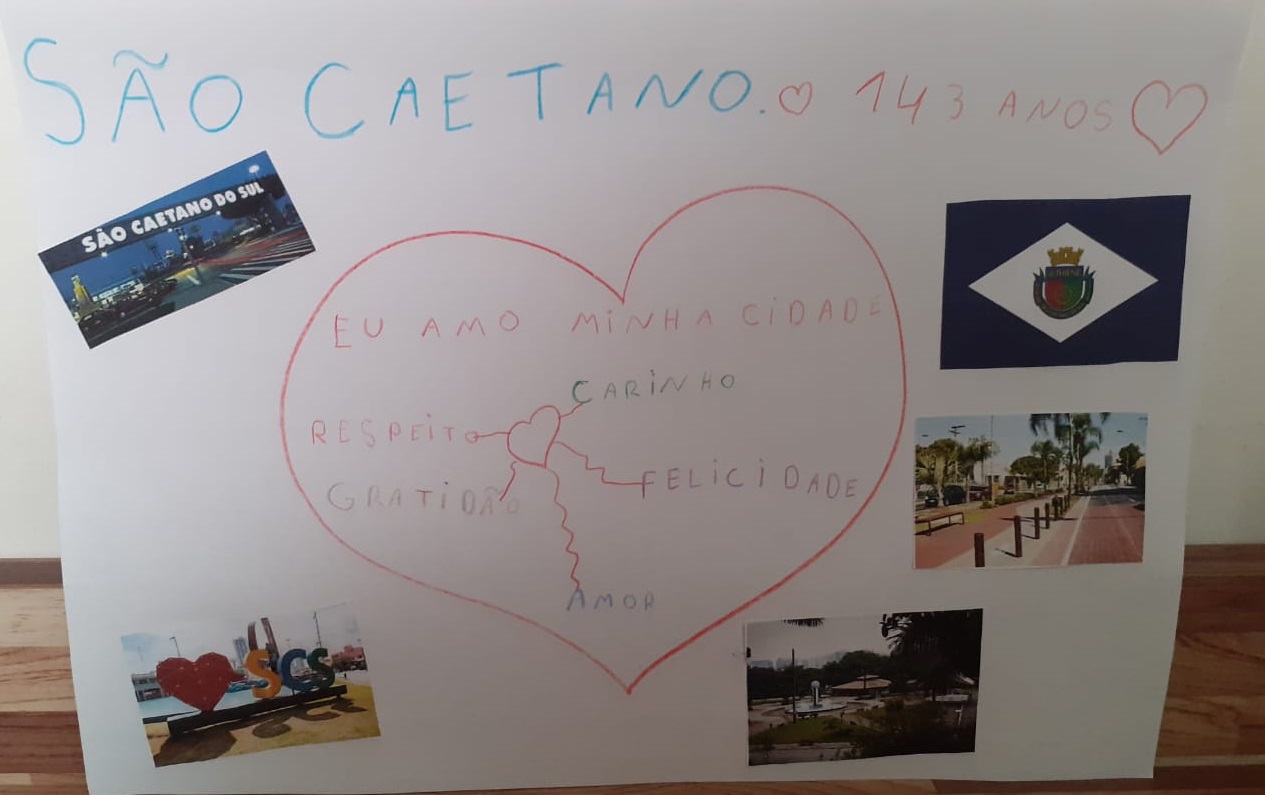 SÃO CAETANO. 143 ANOS
SÃO CAETANO DO SUL
EU AMO MINHA CIDADE
CARINHO
RESPEITO
FELICIDADE
GRATIDÃO
AMOR
SCS